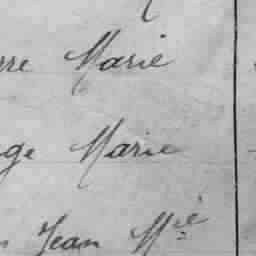 rre Marie
ge Marie
Jean Mie